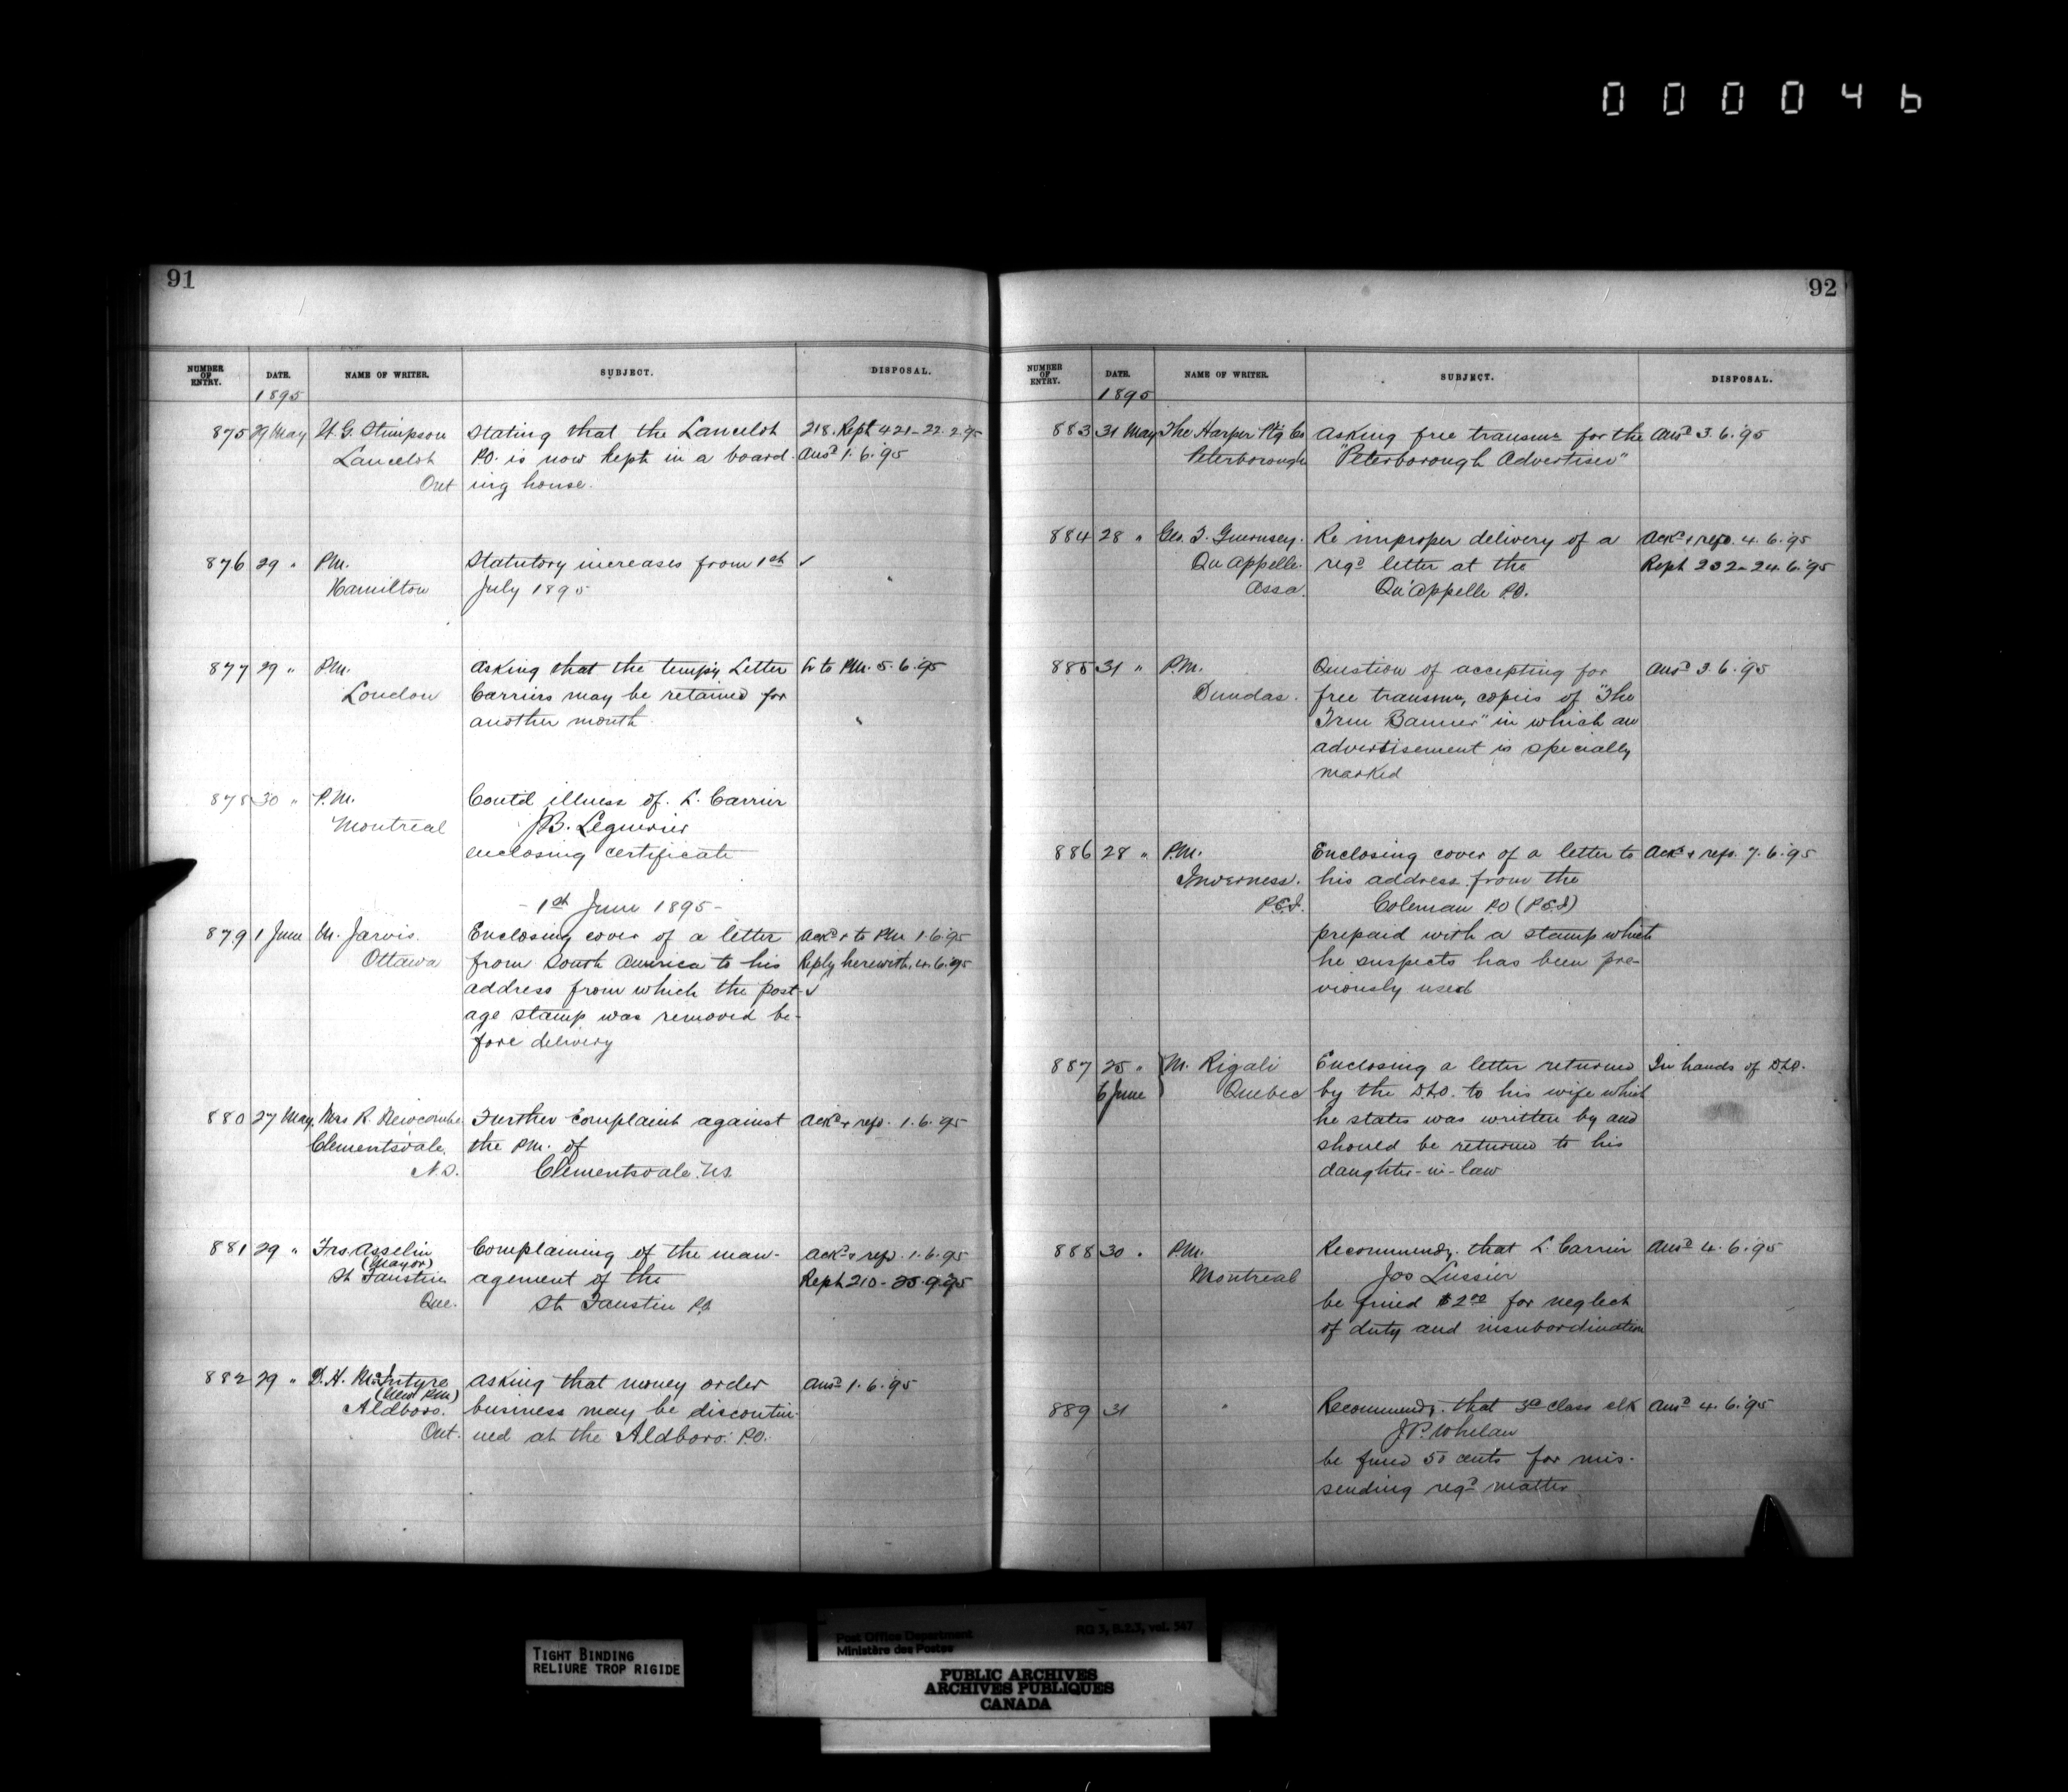 000046
91
NUMBER OF ENTRY. DATE. NAME OF WRITER. SUBJECT. DISPOSAL.
1895
875 29 May W. G. Stimpson Stating that the Lancelot 218. Rept 421-22.2.95
Lancelot P.O. is now kept in a board- Ansd 1.6.'95
Ont ing house.
876 29 " P.M. Statutory increases from 1st ✓
Hamilton July 1895
877 29 " P.M. Asking that the tempy Letter Lr to P.M. 5.6.'95
London Carriers may be retained for
another month.
878 30 " P.M. Contd illness of L. Carrier
Montreal J.B. Leguerrier
enclosing certificate
- 1st June 1895 -
879 1 June M. Jarvis. Enclosing cover of a letter Ackd & to P.M. 1.6.'95
Ottawa from South America to his Reply herewith, 4.6.'95
address from which the post- ✓
age stamp was removed be-
fore delivery
880 27 May Mrs R. Newcombe Further complaint against Ackd & refd. 1.6.'95
Clementsvale, the P.M. of
N.S. Clementsvale. N.S.
881 29 " Frs. Asselin Complaining of the man- Ackd & refd. 1.6.'95
(Mayor)
St Faustin agement of the Rept 210-25.9.'95
Que. St Faustin P.O.
882 29 " D. H. McIntyre Asking that money order Ansd 1.6.'95
(New P.M.)
Aldboro. business may be discontin-
Ont. ued at the Aldboro. P.O.
92
NUMBER OF ENTRY. DATE. NAME OF WRITER. SUBJECT. DISPOSAL.
1895
883 31 May The Harper Ptg Co Asking free transmn for the Ansd 3.6.'95
Peterborough "Peterborough Advertiser"
884 28 " Geo. T. Guernsey. Re improper delivery of a Ackd & refd. 4.6.'95
Qu'Appelle. regd letter at the Rept 232-24.6.'95
Assa. Qu'Appelle P.O.
885 31 " P.M. Question of accepting for Ansd 3.6.'95
Dundas. free transmn, copies of "The
True Banner" in which an
advertisement is specially
marked
886 28 " P.M. Enclosing cover of a letter to Ackd & refd. 7.6.'95
Inverness. his address from the
P.E.I. Coleman P.O (P.E.I)
prepaid with a stamp which
he suspects has been pre-
viously used
887 25 " M. Rigali Enclosing a letter returned In hands of D.L.O.
6 June Quebec by the D.L.O. to his wife which
he states was written by and
should be returned to his
daughter-in-law
888 30 " P.M. Recommendg. that L. Carrier Ansd 4.6.'95
Montreal Jos Lussier
be fined $2.00 for neglect
of duty and insubordination
889 31 " Recommendg. that 3d class clk Ansd 4.6.'95
J P. Whelan
be fined 50 cents for mis-
sending regd matter
Post Office Department RG 3, B.2.3, vol. 567
Ministère des Postes
TIGHT BINDING
RELIURE TROP RIGIDE
PUBLIC ARCHIVES
ARCHIVES PUBLIQUES
CANADA